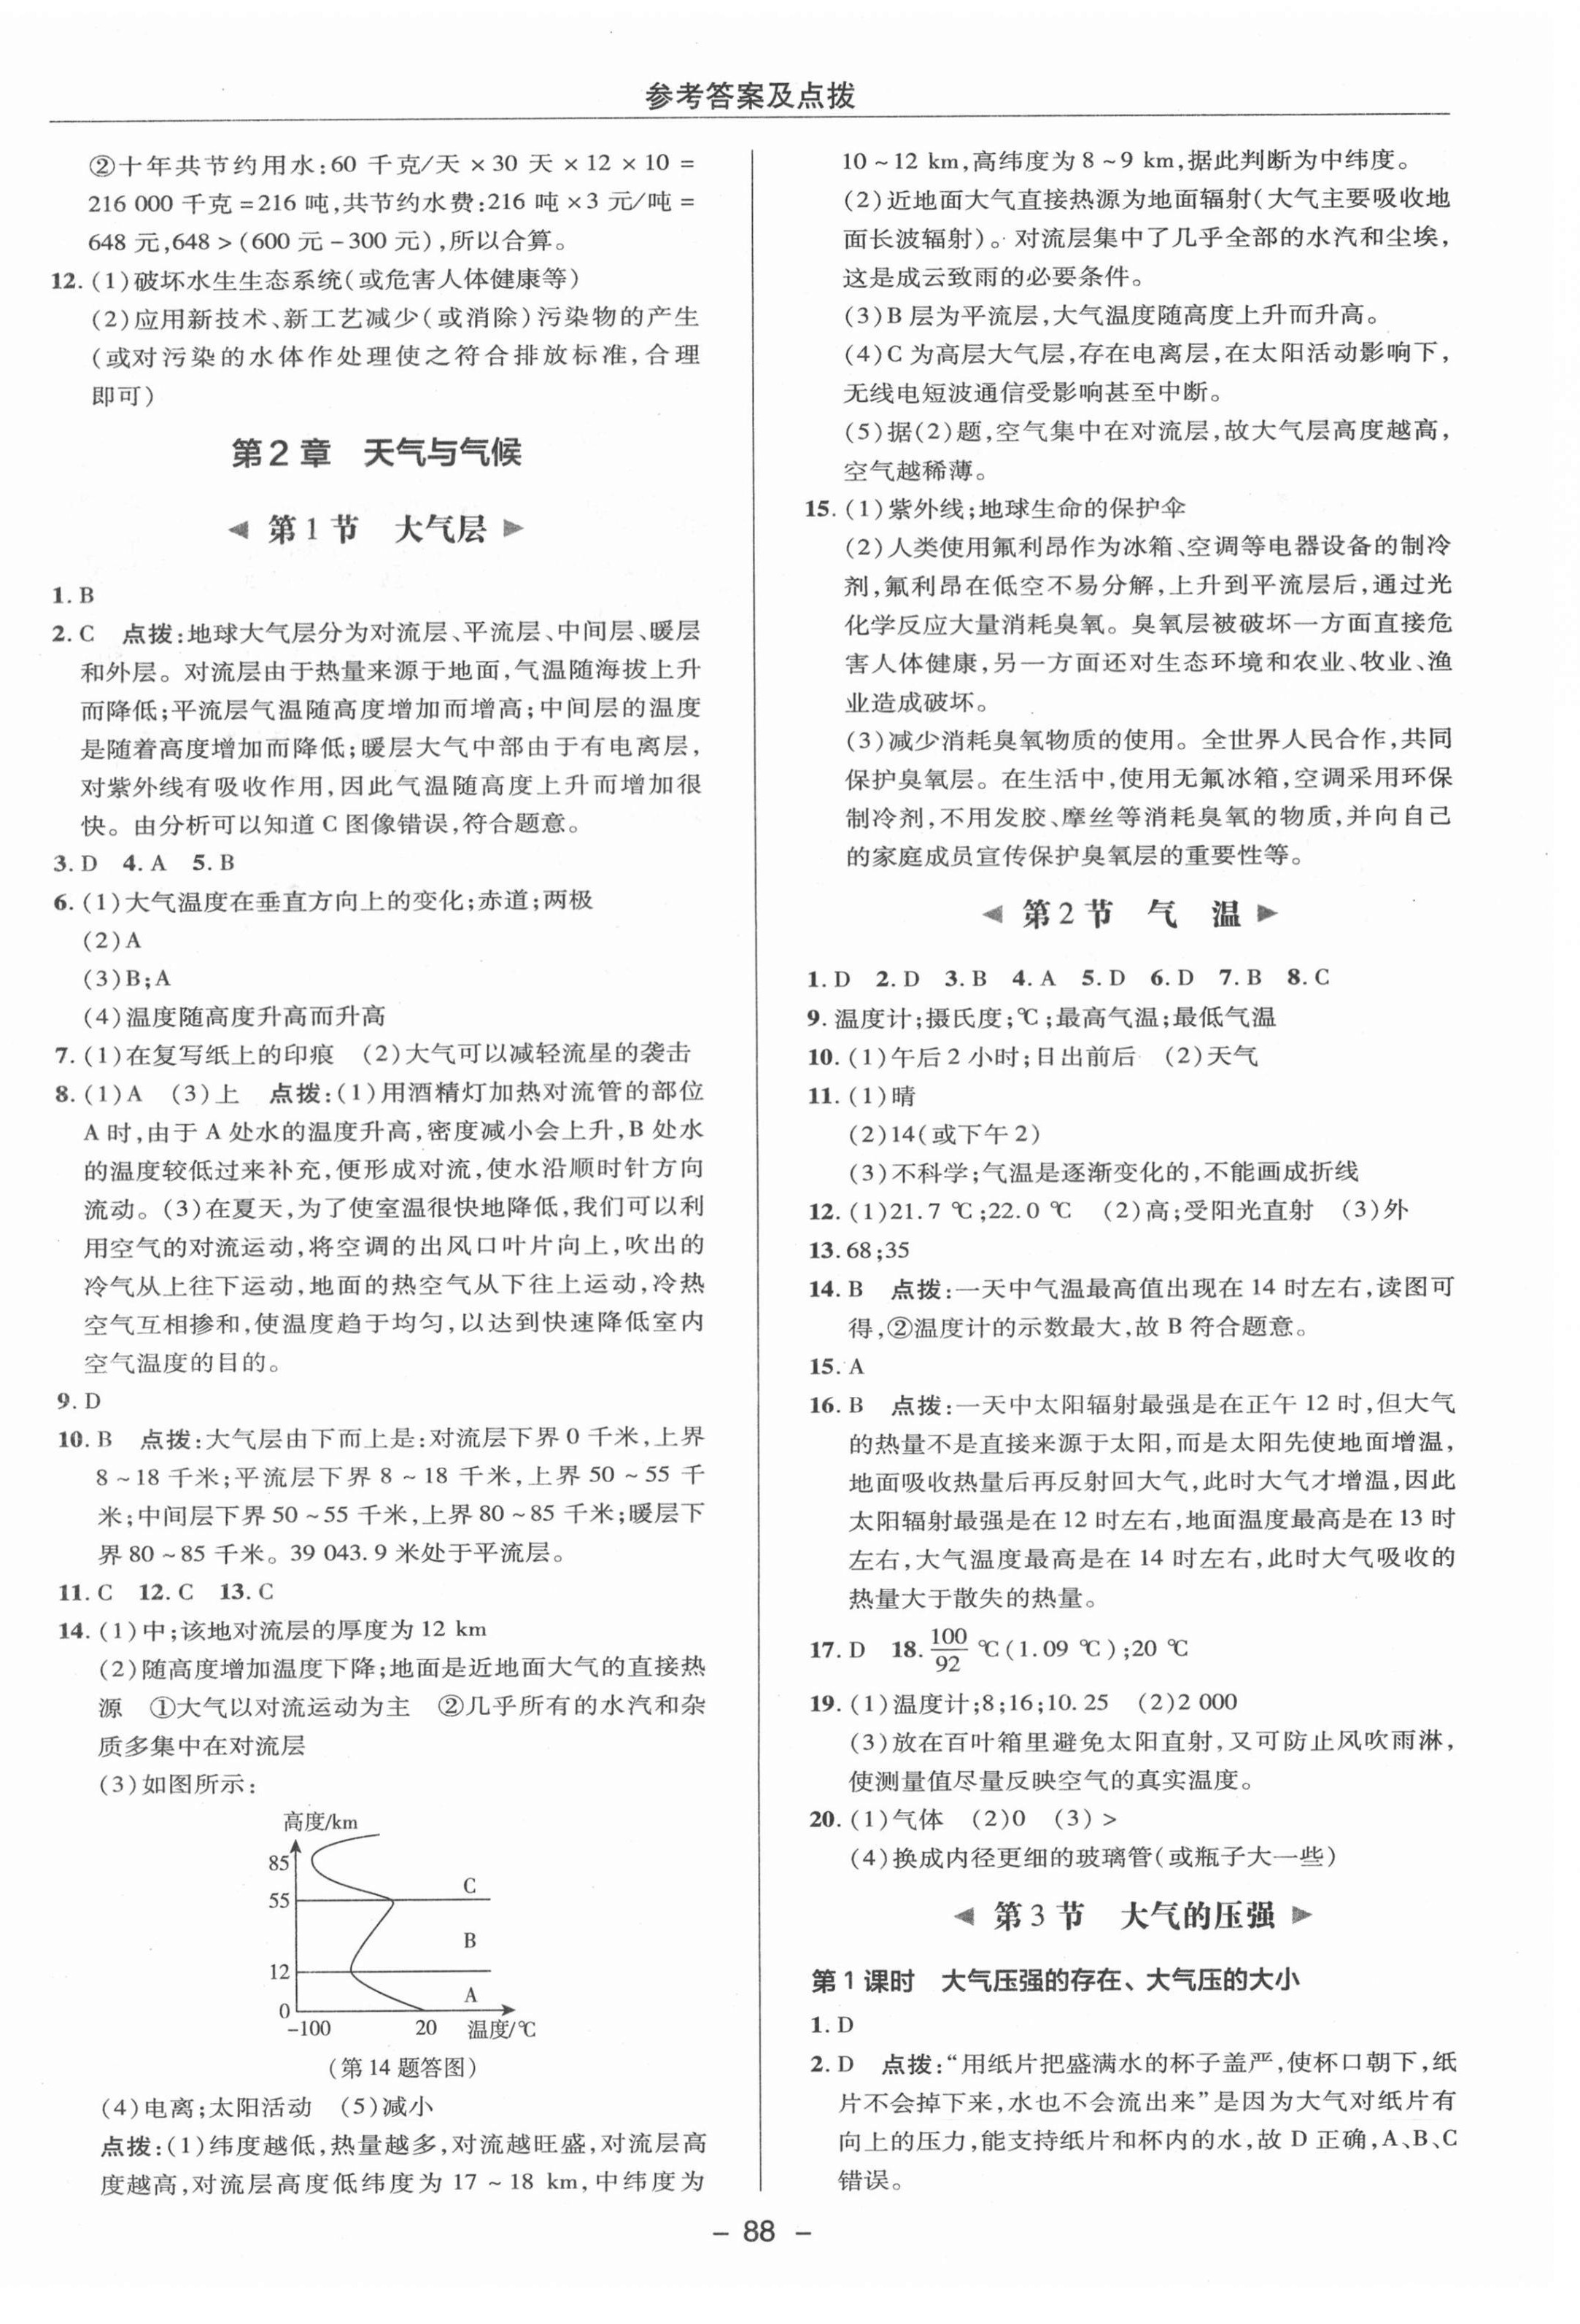 参考答案及点拨
②十年共节约用水:60 千克/天 × 30 天 × 12 × 10 =
216 000 千克 =216 吨,共节约水费:216 吨 ×3 元/吨 =
648 元,648 > (600 元 - 300 元) ,所以合算。
12. (1)破坏水生生态系统(或危害人体健康等)
(2)应用新技术、新工艺减少(或消除)污染物的产生
(或对污染的水体作处理使之符合排放标准,合理
即可)
第2章 天气与气候
第1节 大气层
1. B
2. C 点拨:地球大气层分为对流层、平流层、中间层、暖层
和外层。对流层由于热量来源于地面,气温随海拔上升
而降低;平流层气温随高度增加而增高;中间层的温度
是随着高度增加而降低;暖层大气中部由于有电离层,
对紫外线有吸收作用,因此气温随高度上升而增加很
快。由分析可以知道 C 图像错误,符合题意。
3. D 4. A 5. B
6. (1)大气温度在垂直方向上的变化;赤道;两极
(2)A
(3)B;A
(4)温度随高度升高而升高
7. (1)在复写纸上的印痕 (2)大气可以减轻流星的袭击
8. (1)A (3)上 点拨:(1)用酒精灯加热对流管的部位
A 时,由于 A 处水的温度升高,密度减小会上升,B 处水
的温度较低过来补充,便形成对流,使水沿顺时针方向
流动。(3)在夏天,为了使室温很快地降低,我们可以利
用空气的对流运动,将空调的出风口叶片向上,吹出的
冷气从上往下运动,地面的热空气从下往上运动,冷热
空气互相掺和,使温度趋于均匀,以达到快速降低室内
空气温度的目的。
9. D
10. B 点拨:大气层由下而上是:对流层下界 0 千米,上界
8 ~ 18 千米;平流层下界 8 ~ 18 千米,上界 50 ~ 55 千
米;中间层下界 50 ~ 55 千米,上界 80 ~ 85 千米;暖层下
界 80 ~ 85 千米。39 043. 9 米处于平流层。
11. C 12. C 13. C
14. (1)中;该地对流层的厚度为 12 km
(2)随高度增加温度下降;地面是近地面大气的直接热
源 ①大气以对流运动为主 ②几乎所有的水汽和杂
质多集中在对流层
(3)如图所示:
高度/km
85
C
55
B
12
A
0
-100 20 温度/℃
(第 14 题答图)
(4)电离;太阳活动 (5)减小
点拨:(1)纬度越低,热量越多,对流越旺盛,对流层高
度越高,对流层高度低纬度为 17 ~ 18 km,中纬度为
10 ~ 12 km,高纬度为 8 ~ 9 km,据此判断为中纬度。
(2)近地面大气直接热源为地面辐射(大气主要吸收地
面长波辐射)。对流层集中了几乎全部的水汽和尘埃,
这是成云致雨的必要条件。
(3)B 层为平流层,大气温度随高度上升而升高。
(4)C 为高层大气层,存在电离层,在太阳活动影响下,
无线电短波通信受影响甚至中断。
(5)据(2)题,空气集中在对流层,故大气层高度越高,
空气越稀薄。
15. (1)紫外线;地球生命的保护伞
(2)人类使用氟利昂作为冰箱、空调等电器设备的制冷
剂,氟利昂在低空不易分解,上升到平流层后,通过光
化学反应大量消耗臭氧。臭氧层被破坏一方面直接危
害人体健康,另一方面还对生态环境和农业、牧业、渔
业造成破坏。
(3)减少消耗臭氧物质的使用。全世界人民合作,共同
保护臭氧层。在生活中,使用无氟冰箱,空调采用环保
制冷剂,不用发胶、摩丝等消耗臭氧的物质,并向自己
的家庭成员宣传保护臭氧层的重要性等。
第2节 气 温
1. D 2. D 3. B 4. A 5. D 6. D 7. B 8. C
9. 温度计;摄氏度;℃;最高气温;最低气温
10. (1)午后 2 小时;日出前后 (2)天气
11. (1)晴
(2)14(或下午 2)
(3)不科学;气温是逐渐变化的,不能画成折线
12. (1)21. 7 ℃;22. 0 ℃ (2)高;受阳光直射 (3)外
13. 68;35
14. B 点拨:一天中气温最高值出现在 14 时左右,读图可
得,②温度计的示数最大,故 B 符合题意。
15. A
16. B 点拨:一天中太阳辐射最强是在正午 12 时,但大气
的热量不是直接来源于太阳,而是太阳先使地面增温,
地面吸收热量后再反射回大气,此时大气才增温,因此
太阳辐射最强是在 12 时左右,地面温度最高是在 13 时
左右,大气温度最高是在 14 时左右,此时大气吸收的
热量大于散失的热量。
17. D 18. 100/92 ℃(1. 09 ℃);20 ℃
19. (1)温度计;8;16;10. 25 (2)2 000
(3)放在百叶箱里避免太阳直射,又可防止风吹雨淋,
使测量值尽量反映空气的真实温度。
20. (1)气体 (2)0 (3) >
(4)换成内径更细的玻璃管(或瓶子大一些)
第3节 大气的压强
第1课时 大气压强的存在、大气压的大小
1. D
2. D 点拨:“用纸片把盛满水的杯子盖严,使杯口朝下,纸
片不会掉下来,水也不会流出来”是因为大气对纸片有
向上的压力,能支持纸片和杯内的水,故 D 正确,A、B、C
错误。
- 88 -